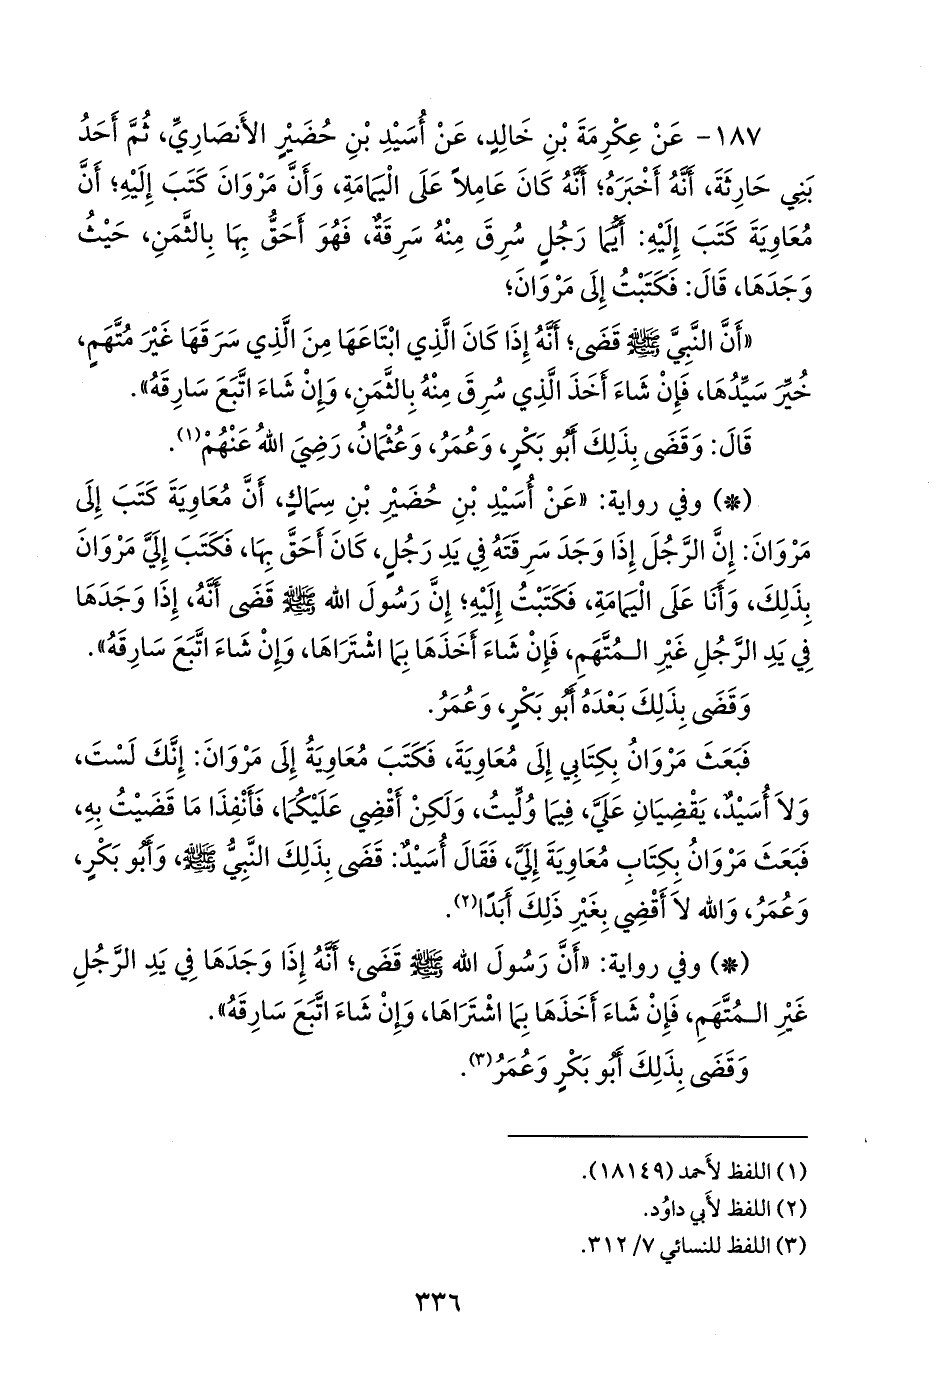 ١٨٧- عَنْ عِكْرِمَةَ بْنِ خَالِدٍ، عَنْ أُسَيْدِ بْنِ حُضَيْرٍ الأَنصَارِيِّ، ثُمَّ أَحَدُ
بَنِي حَارِثَةَ، أَنَّهُ أَخْبَرَهُ؛ أَنَّهُ كَانَ عَامِلاً عَلَى الْيَمَامَةِ، وَأَنَّ مَرْوَانَ كَتَبَ إِلَيْهِ؛ أَنَّ
مُعَاوِيَةَ كَتَبَ إِلَيْهِ: أَيُّمَا رَجُلٍ سُرِقَ مِنْهُ سَرِقَةٌ، فَهُوَ أَحَقُّ بِهَا بِالثَّمَنِ، حَيْثُ
وَجَدَهَا، قَالَ: فَكَتَبْتُ إِلَى مَرْوَانَ؛
«أَنَّ النَّبِيَّ ﷺ قَضَى؛ أَنَّهُ إِذَا كَانَ الَّذِي ابْتَاعَهَا مِنَ الَّذِي سَرَقَهَا غَيْرَ مُتَّهَمٍ،
خُيِّرَ سَيِّدُهَا، فَإِنْ شَاءَ أَخَذَ الَّذِي سُرِقَ مِنْهُ بِالثَّمَنِ، وَإِنْ شَاءَ اتَّبَعَ سَارِقَهُ».
قَالَ: وَقَضَى بِذَلِكَ أَبُو بَكْرٍ، وَعُمَرُ، وَعُثْمَانُ، رَضِيَ اللهُ عَنْهُمْ(١).
(*) وفي رواية: «عَنْ أُسَيْدِ بْنِ حُضَيْرِ بْنِ سِمَاكٍ، أَنَّ مُعَاوِيَةَ كَتَبَ إِلَى
مَرْوَانَ: إِنَّ الرَّجُلَ إِذَا وَجَدَ سَرِقَتَهُ فِي يَدِ رَجُلٍ، كَانَ أَحَقَّ بِهَا، فَكَتَبَ إِلَيَّ مَرْوَانَ
بِذَلِكَ، وَأَنَا عَلَى الْيَمَامَةِ، فَكَتَبْتُ إِلَيْهِ؛ إِنَّ رَسُولَ الله ﷺ قَضَى أَنَّهُ، إِذَا وَجَدَهَا
فِي يَدِ الرَّجُلِ غَيْرِ الـمُتَّهَمِ، فَإِنْ شَاءَ أَخَذَهَا بِمَا اشْتَرَاهَا، وَإِنْ شَاءَ اتَّبَعَ سَارِقَهُ».
وَقَضَى بِذَلِكَ بَعْدَهُ أَبُو بَكْرٍ، وَعُمَرُ.
فَبَعَثَ مَرْوَانُ بِكِتَابِي إِلَى مُعَاوِيَةَ، فَكَتَبَ مُعَاوِيَةُ إِلَى مَرْوَانَ: إِنَّكَ لَسْتَ،
وَلاَ أُسَيْدٌ، يَقْضِيَانِ عَلَيَّ، فِيمَا وُلِّيتُ، وَلَكِنْ أَقْضِي عَلَيْكُمَا، فَأَنْفِذَا مَا قَضَيْتُ بِهِ،
فَبَعَثَ مَرْوَانُ بِكِتَابِ مُعَاوِيَةَ إِلَيَّ، فَقَالَ أُسَيْدٌ: قَضَى بِذَلِكَ النَّبِيُّ ﷺ، وَأَبُو بَكْرٍ،
وَعُمَرُ، وَالله لاَ أَقْضِي بِغَيْرِ ذَلِكَ أَبَدًا(٢).
(*) وفي رواية: «أَنَّ رَسُولَ الله ﷺ قَضَى؛ أَنَّهُ إِذَا وَجَدَهَا فِي يَدِ الرَّجُلِ
غَيْرِ الـمُتَّهَمِ، فَإِنْ شَاءَ أَخَذَهَا بِمَا اشْتَرَاهَا، وَإِنْ شَاءَ اتَّبَعَ سَارِقَهُ».
وَقَضَى بِذَلِكَ أَبُو بَكْرٍ وَعُمَرُ(٣).
(١) اللفظ لأَحمد (١٨١٤٩).
(٢) اللفظ لأَبي داوُد.
(٣) اللفظ للنسائي ٧/ ٣١٢.
٣٣٦